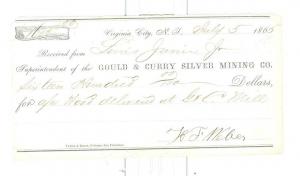 Virginia City, N. T. July 5 186
Received from Louis Janin Jr
Superintendent of the GOULD & CURRY SILVER MINING CO.
Sixteen Hundred 00/100 Dollars,
for a/c Wood delivered at G & C Mill